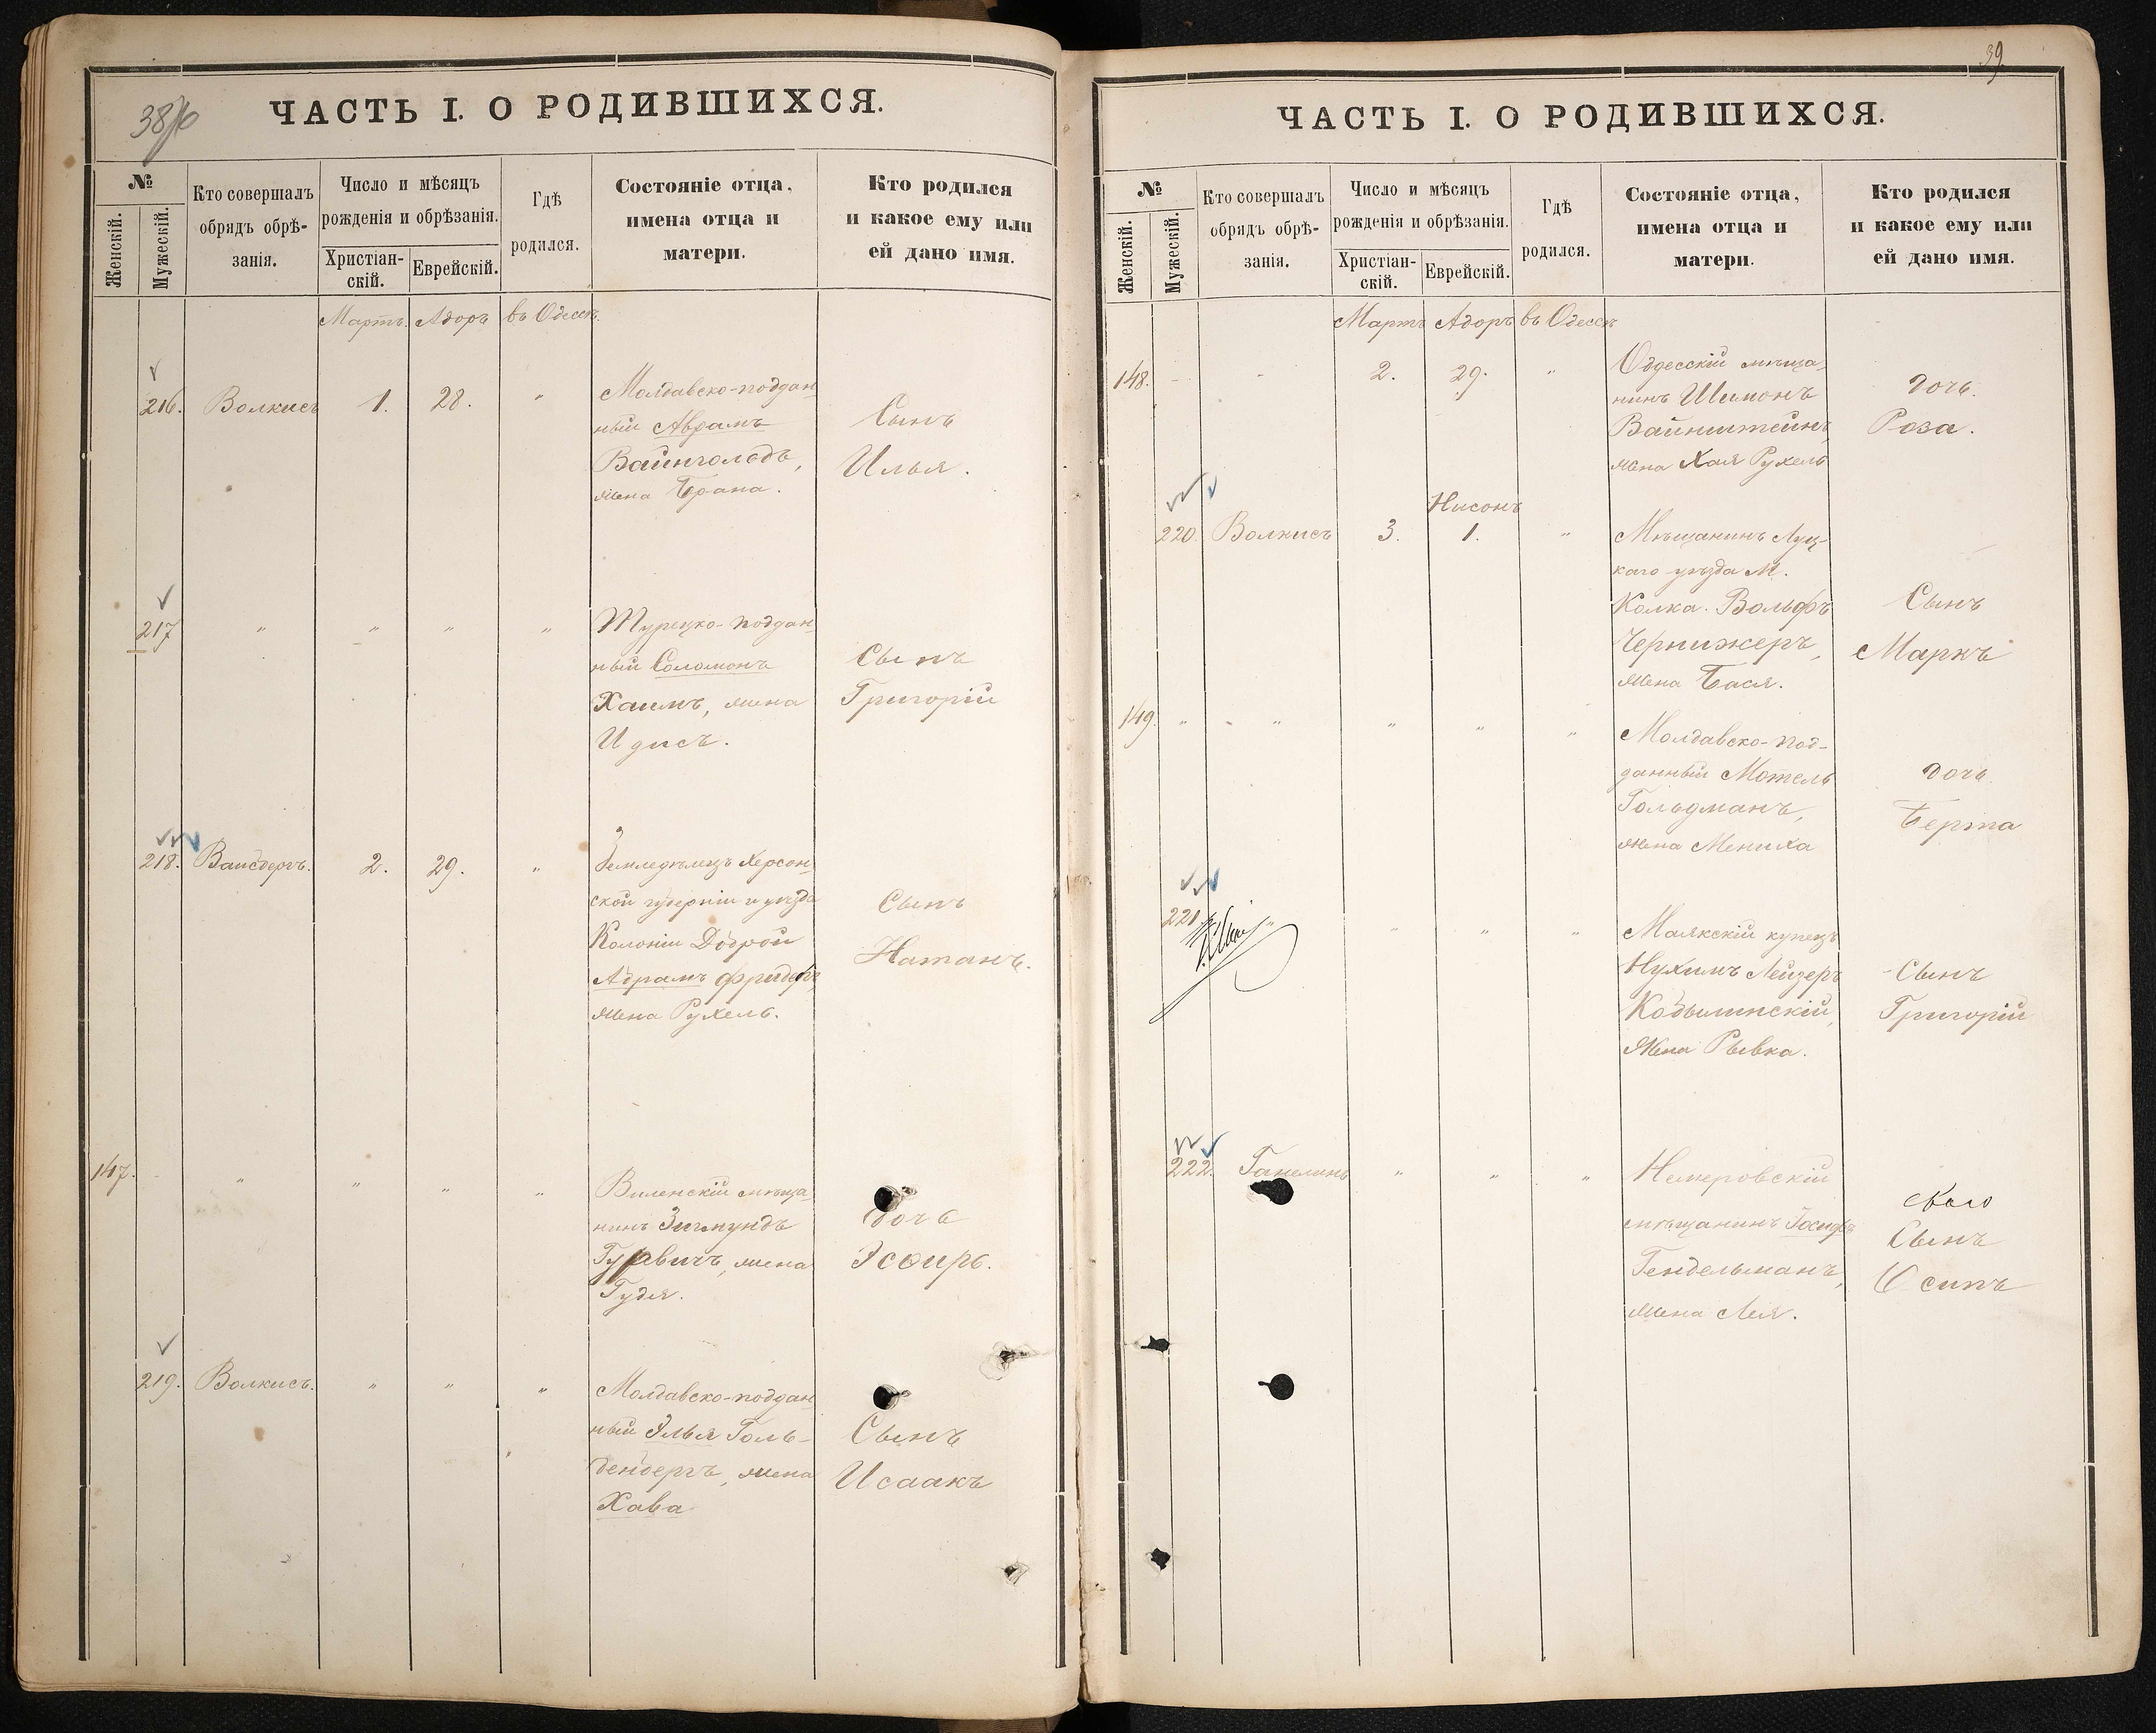 38/10
ЧАСТЬ I. О РОДИВШИХСЯ.
№
Женскій.
Мужескій.
Кто совершалъ
обрядъ обрѣ-
занія.
Число и мѣсяцъ
рожденія и обрѣзанія.
Христіан-
скій.
Еврейскій.
Гдѣ
родился.
Состояніе отца,
имена отца и
матери.
Кто родился
и какое ему или
ей дано имя.
Мартъ. Адоръ въ Одессѣ.
216. Волкисъ 1. 28. "
Молдавско-поддан-
ный Аврамъ
Вайнгольдъ,
жена Брана.
Сынъ
Илья.
217 " " " "
Турецко-поддан-
ный Соломонъ
Хаимъ, жена
Идисъ.
Сынъ
Григорій
218. Вайсбергъ. 2. 29. "
Земледѣлецъ Херсон-
ской губерніи и уѣзда
Колоніи Доброй
Абрамъ Фридбергъ,
жена Рухель.
Сынъ
Натанъ.
147. " " " "
Виленскій мѣща-
нинъ Зигмундъ
Гурвичъ, жена
Гудя.
Дочь
Эсѳирь.
219. Волкисъ. " " "
Молдавско-поддан-
ный Элья Голь-
денбергъ, жена
Хава
Сынъ
Исаакъ
39
ЧАСТЬ I. О РОДИВШИХСЯ.
№
Женскій.
Мужескій.
Кто совершалъ
обрядъ обрѣ-
занія.
Число и мѣсяцъ
рожденія и обрѣзанія.
Христіан-
скій.
Еврейскій.
Гдѣ
родился.
Состояніе отца,
имена отца и
матери.
Кто родился
и какое ему или
ей дано имя.
Мартъ Адоръ въ Одессѣ
148. - - 2. 29. "
Одесскій мѣща-
нинъ Шимонъ
Вайнштейнъ,
жена Хая Рухель
Дочь.
Роза.
Нисонъ
220. Волкисъ 3. 1. "
Мѣщанинъ Луц-
каго уѣзда М.
Колка. Вольфъ
Чернижеръ,
жена Бася.
Сынъ
Маркъ
149. " - " " " "
Молдавско-под-
данный Мотель
Гольдманъ,
жена Мениха
Дочь
Берта
221 " " " "
Маякскій купецъ
Нухимъ Лейзеръ
Кобылинскій,
жена Рывка.
Сынъ
Григорій
222. Ганелинъ " " "
Немеровскій
мѣщанинъ Іосифъ
Гендельманъ,
жена Лея.
Сынъ
Осипъ